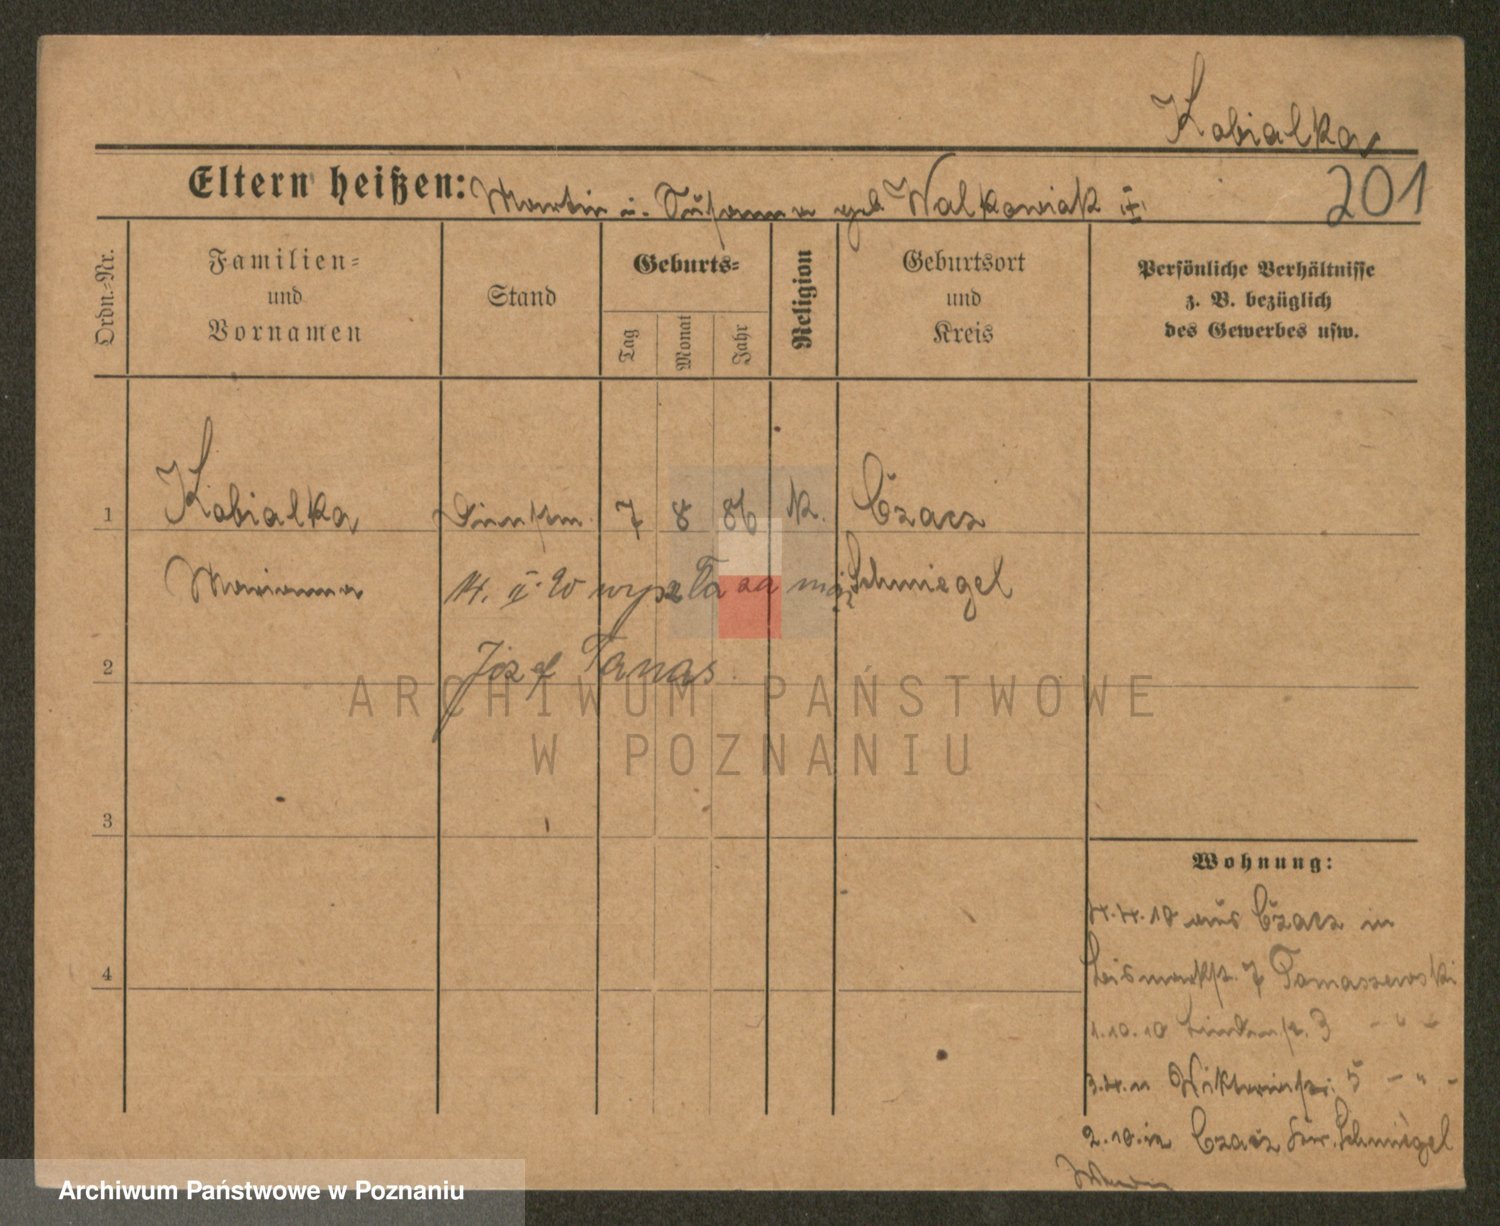 Kobialka
Eltern heißen: Martin u. Susanna geb Walkowiak II
201
Ordn.-Nr.
Familien-
und
Vornamen
Stand
Geburts-
Tag
Monat
Jahr
Religion
Geburtsort
und
Kreis
Persönliche Verhältnisse
z. B. bezüglich
des Gewerbes usw.
1 Kobialka Dienstm. 7 8 86 K. Czacz
Marianna
Schmiegel
14. II. 20 wyszła za mąż
2
Józef Tanas
ARCHIWUM PAŃSTWOWE
W POZNANIU
3
4
Wohnung:
4.4.10 aus Czacz in
Bismarkst. 7 Tomaszewski
1.10.10 Lindenst. 3 - " -
3.4.11 Viktoriastr. 5 - " -
2.10.12 Czacz Kr. Schmiegel
Archiwum Państwowe w Poznaniu